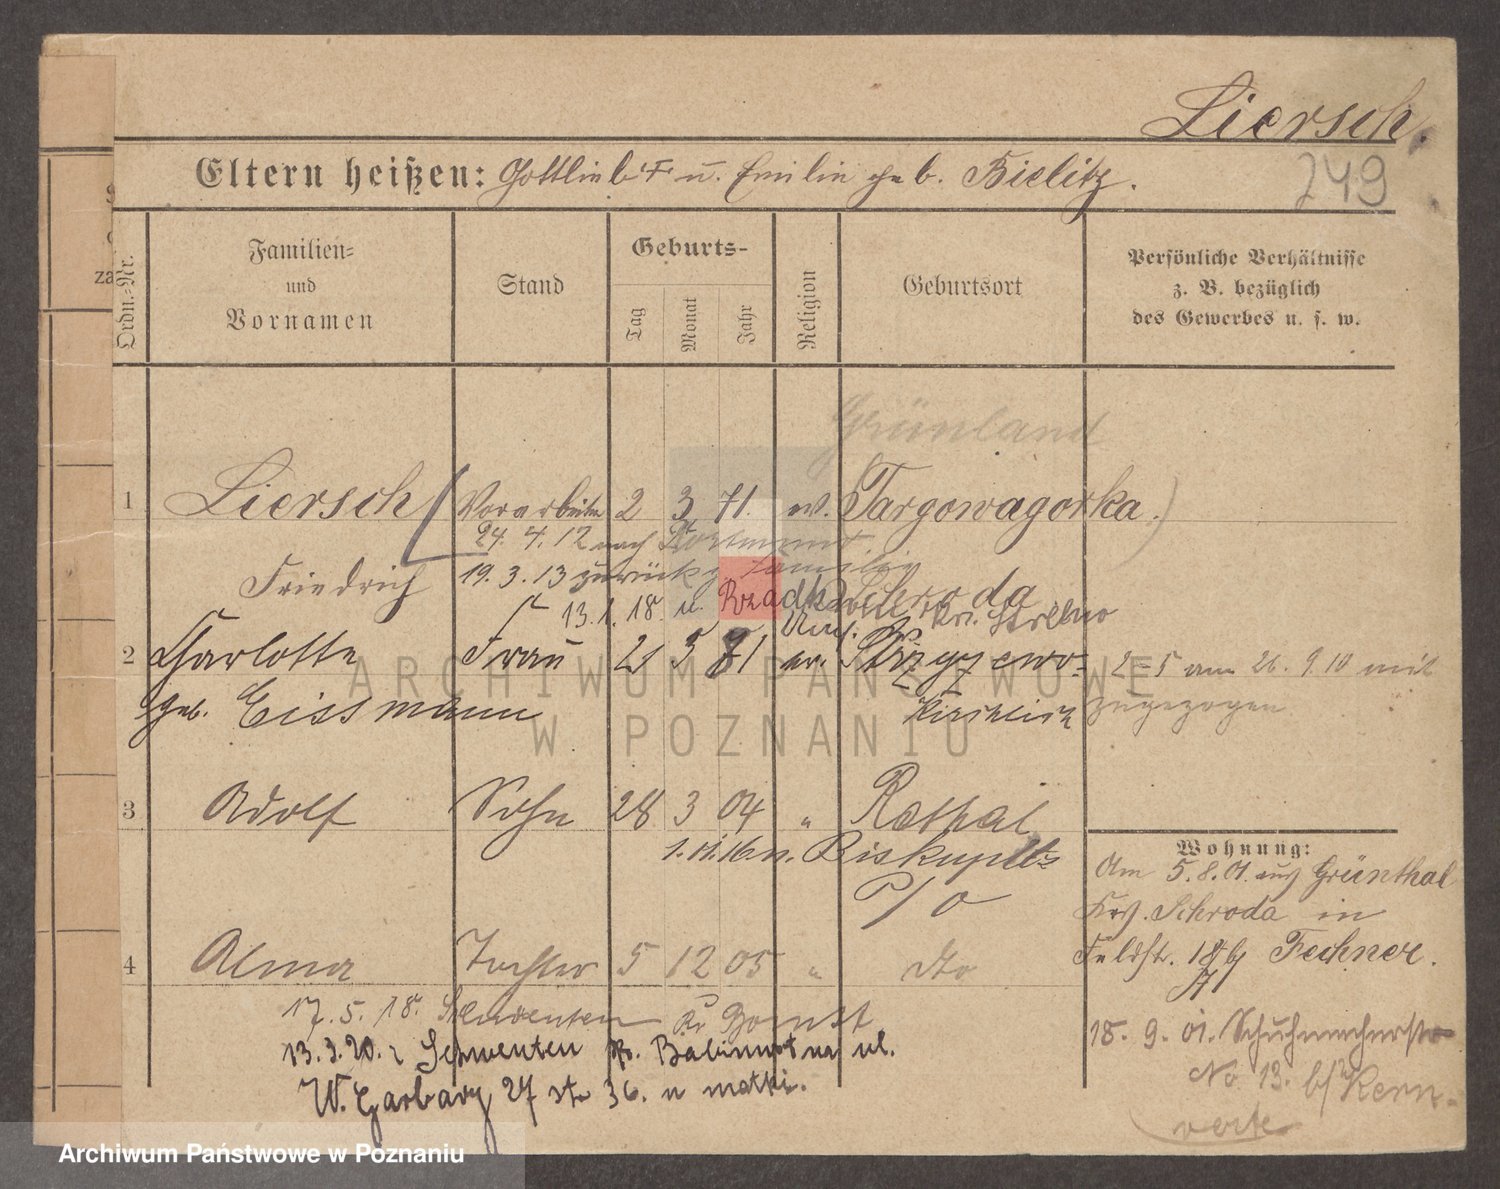 Liersch.
249
Eltern heißen: Gottlieb † u. Emilie geb. Bielitz.
Ordn.-Nr.
Familien-
und
Vornamen
Stand
Geburts-
Tag
Monat
Jahr
Religion
Geburtsort
Persönliche Verhältnisse
z. B. bezüglich
des Gewerbes u. s. w.
Grünland
1 Liersch Vorarbeiter 2 3 71. ev. Targowagorka.
24. 4. 12 nach Dortmund
Friedrich 19. 3. 13 zurück z Familie
Schroda
13. 1. 18. n. Rzadk Kr. Strelno
2 Charlotte Frau 21 5 81 ev.
geb. Eissmann Kirchlich
2-5 am 26. 9. 10 mit
zugezogen
3 Adolf Sohn 28 3 04 "
1. 11. 16 n. Biskupitz
4 Alma Tochter 5 12 05 " dto
17. 5. 18. Schwenten Kr Bomst
13. 3. 20. z Schwenten Kr. Babimost na ul.
W. Garbary 27 str 36. u matki.
Wohnung:
Am 5. 8. 01. aus Grünthal
Krs. Schroda in
Feldstr. 18 b/ Fechner.
18. 9. 01. Schuhmacherstr
No 13. b/ Kern-
verte
ARCHIWUM PAŃSTWOWE
W POZNANIU
Archiwum Państwowe w Poznaniu